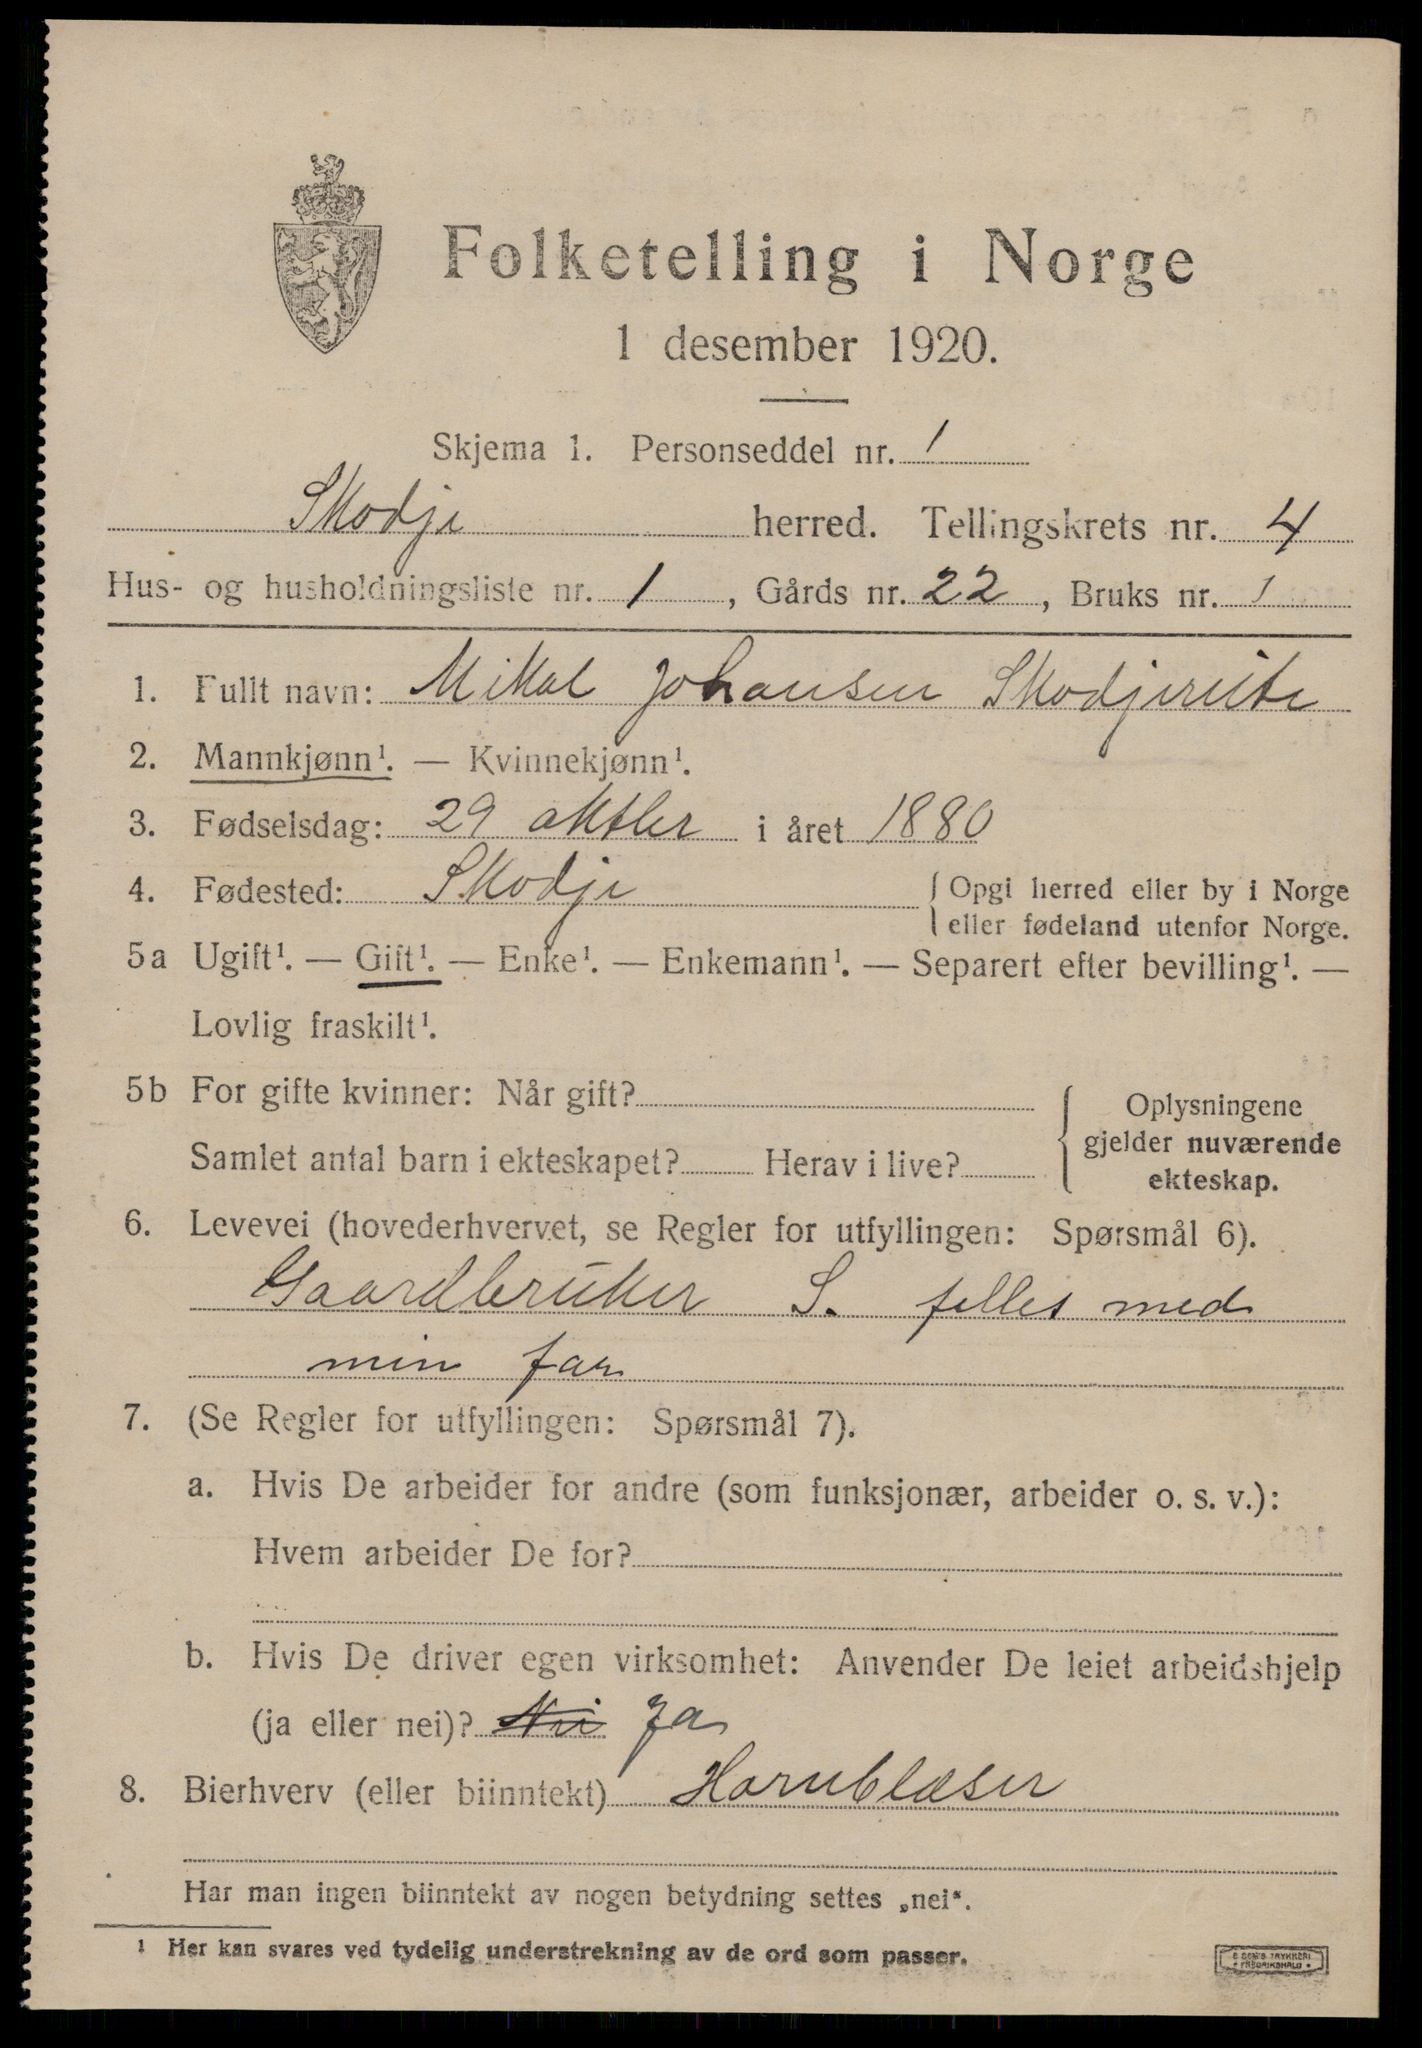 Folketelling i Norge
1 desember 1920.
Skjema 1. Personseddel nr. 1
Skodje herred. Tellingskrets nr. 4
Hus- og husholdningsliste nr. 1, Gårds nr. 22, Bruks nr. 1
1. Fullt navn: Mikal Johansen Skodjereite
2. Mannkjønn¹. — Kvinnekjønn¹.
3. Fødselsdag: 29 oktber i året 1880
4. Fødested: Skodje { Opgi herred eller by i Norge
eller fødeland utenfor Norge.
5a Ugift¹. — Gift¹. — Enke¹. — Enkemann¹. — Separert efter bevilling¹. —
Lovlig fraskilt¹.
5b For gifte kvinner: Når gift?
Samlet antal barn i ekteskapet? Herav i live?
{ Oplysningene
gjelder nuværende
ekteskap.
6. Levevei (hovederhvervet, se Regler for utfyllingen: Spørsmål 6).
Gaardbruker S. felles med
min far
7. (Se Regler for utfyllingen: Spørsmål 7).
a. Hvis De arbeider for andre (som funksjonær, arbeider o. s. v.):
Hvem arbeider De for?
b. Hvis De driver egen virksomhet: Anvender De leiet arbeidshjelp
(ja eller nei)? Nei Ja
8. Bierhverv (eller biinntekt) Hornblæser
Har man ingen biinntekt av nogen betydning settes „nei“.
¹ Her kan svares ved tydelig understrekning av de ord som passer.
E SEM'S TRYKKERI
• FREDRIKSHALD •